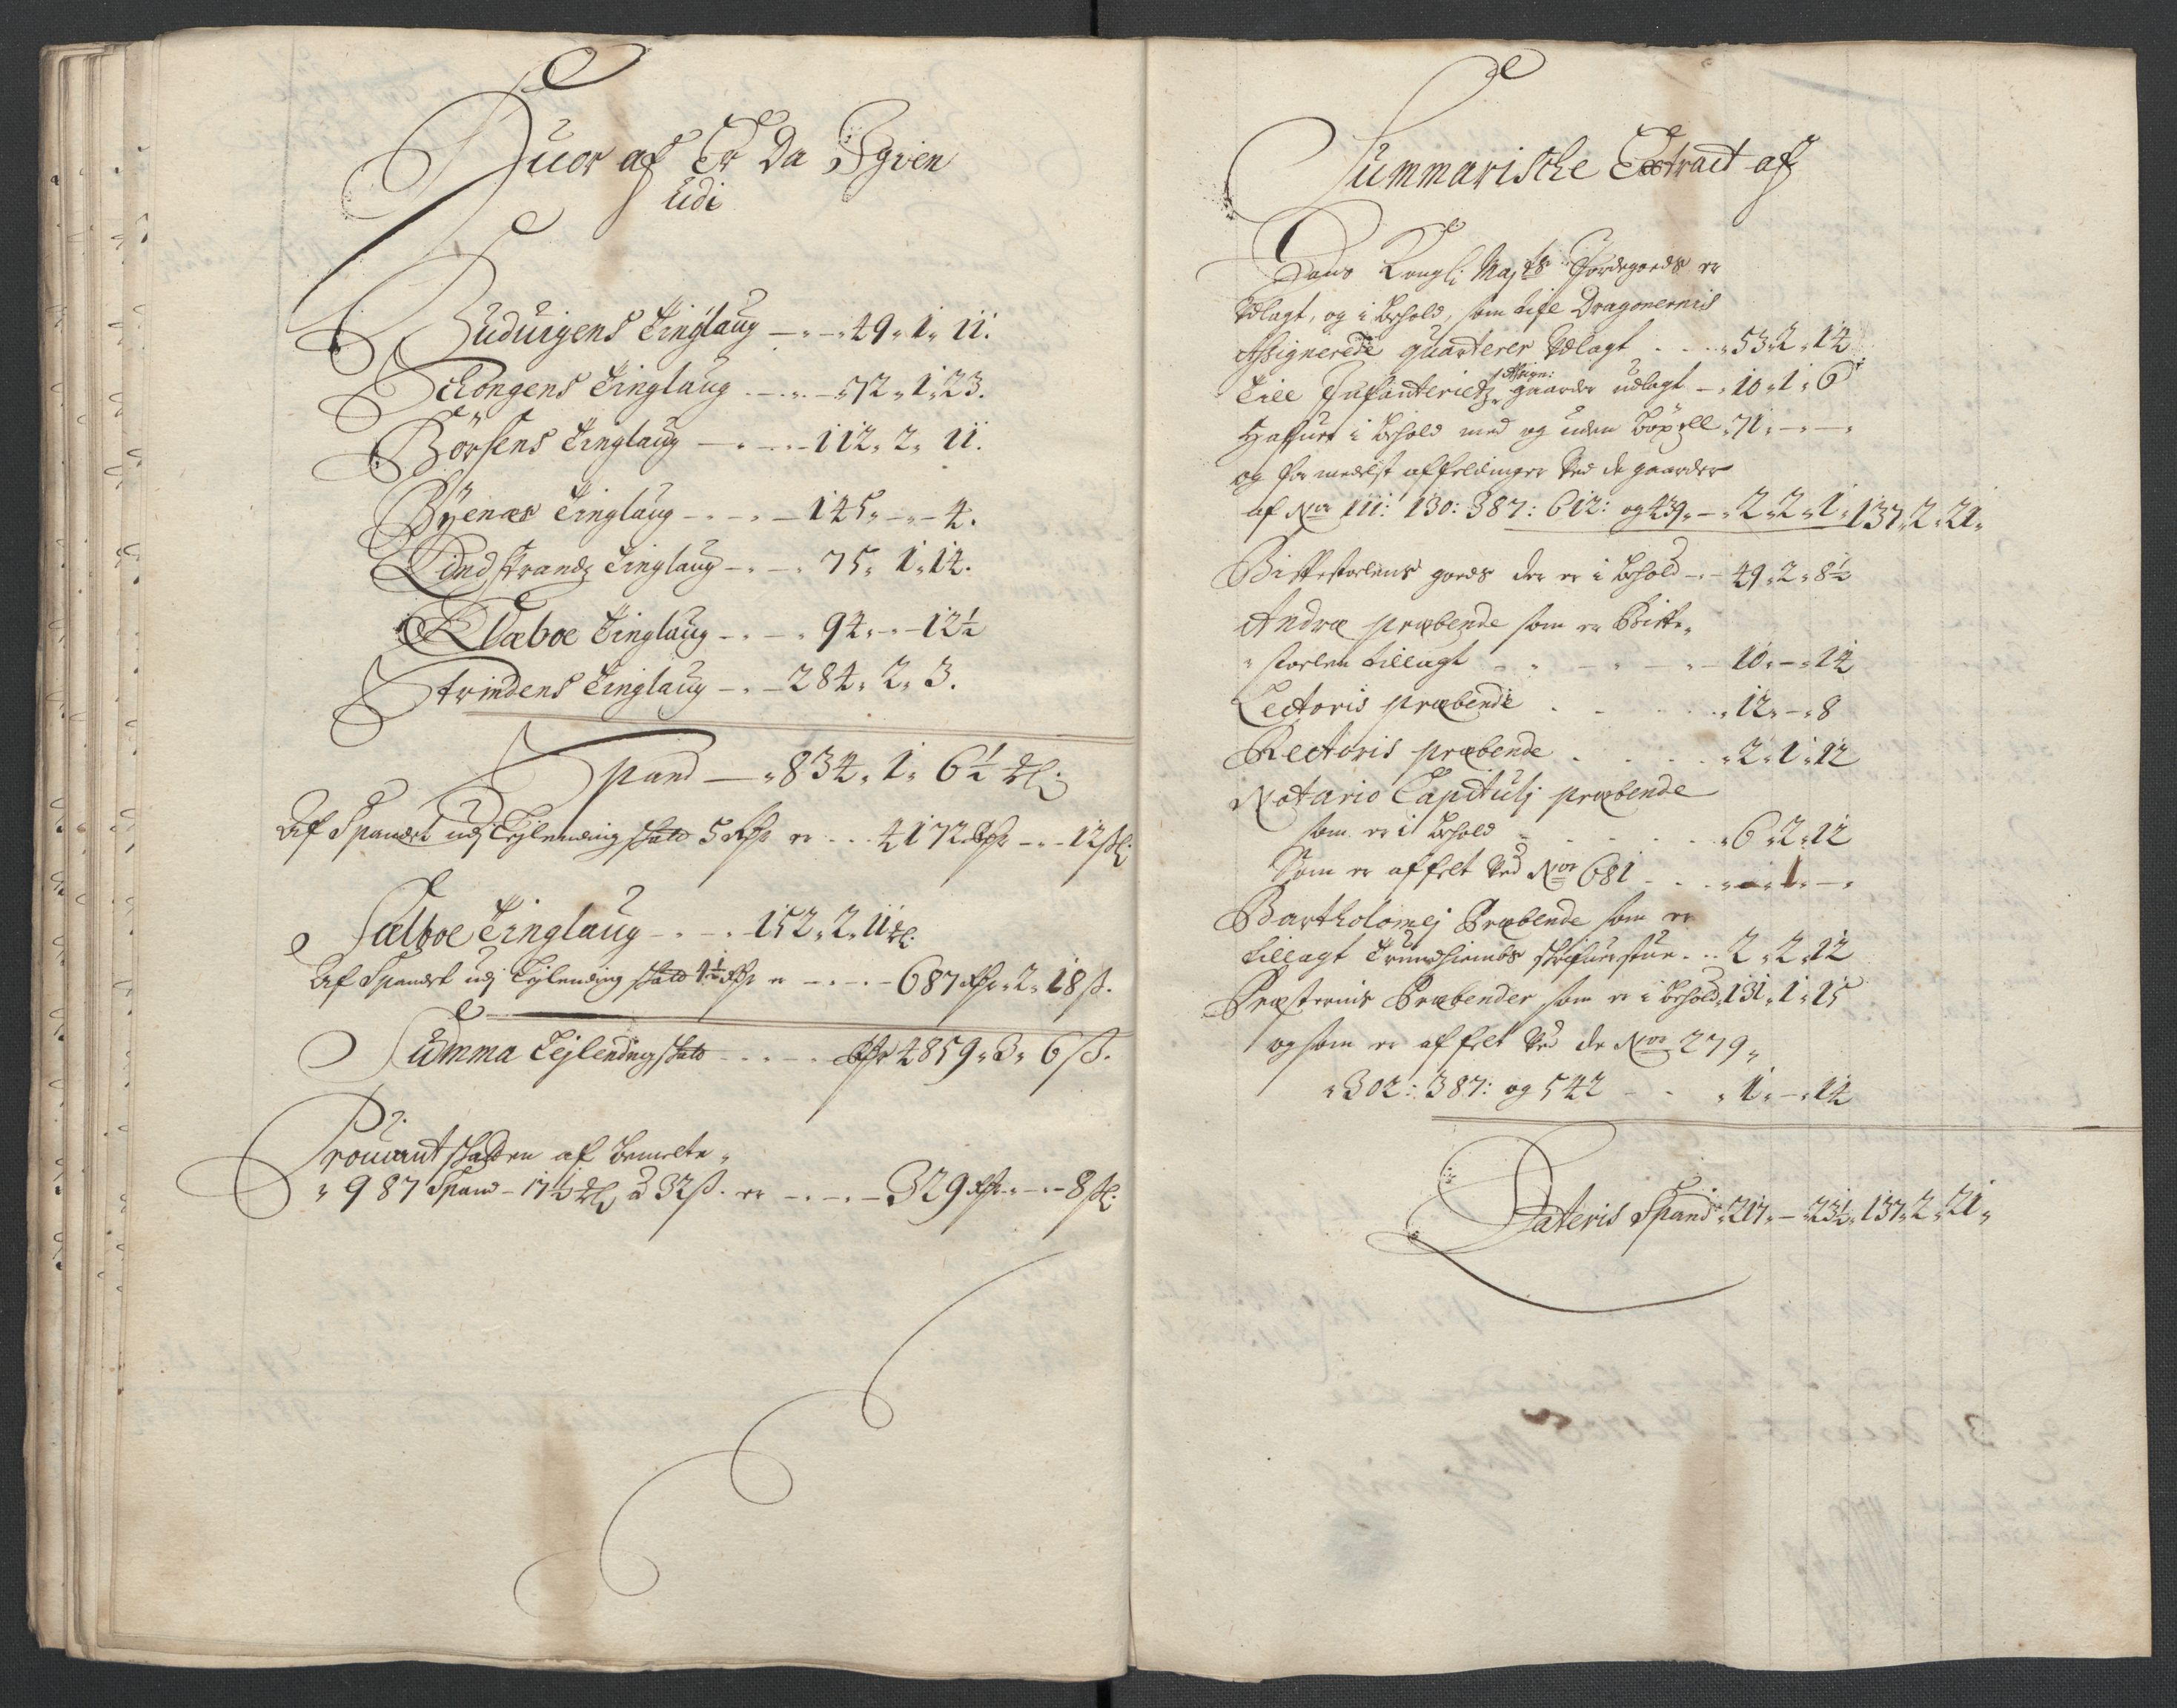 Huor af Er Da Igien
Udi
Buduigens Tinglaug - - 49 " 1 " 11.
Schongens Tinglaug - - - 72 " 1 " 23.
Børsens Tinglaug - - - 112 " 2 " 11.
Byenæs Tinglaug - - - 145 " - " 4.
Lindstrands Tinglaug - - 75 " 1 " 14.
Klæboe Tinglaug - - - 94 " - " 12½
Strindens Tinglaug - - 284 " 2 " 3.
Spand - " 834 " 1 " 6½ Ml:
Af Spandet udj Lejlending schatt 5 Rdr er - - 4172 Rdr - " - 12 ß:
Sælboe Tinglaug - - - 152 " 2 " 11 Ml:
Af Spandet udj Lejlending schatt 4½ Rdr er - - - 687 Rdr " 2 " 18 ß.
Summa Lejlending schatt - - - Rdr 4859 " 3 " 6 ß.
Prouiant schatten af bemelte "
" 987 Spand - 17½ Ml: a 32 ß. er - - - 329 Rdr - " - 8 ß:
Summarische Extract af
Hans Kongl: Mayts Jordegods er
Udlagt, og i behold, som till Dragonernis
Assignerede quarterer Udlagt - - " 53 " 2 " 14
Till Infanteriets Assign: gaarder udlagt - " 10 " 1 " 6
Hafuer i behold med og uden böxell " 71 " - " - "
og formedelst affeldinger Ved de gaarder
af No 111: 130: 387: 612: og 439 " - " 2 " 2 " 1 " 137 " 2 " 21 "
Bispestoelens goeds der er i behold - " 49 " 2 " 8½
Andræ præbende som er Bispe "
" stoelen tillagt - - - - - 10 " - " 14
Lectoris præbende - - - " 12 " - " 8
Rectoris præbende - - - " 2 " 1 " 12
Notario Capitulj præbende
som er i behold - - - - " 6 " 2 " 12
Som er affelt Ved No 681 - - " - " 1 " - "
Bartholomej Præbende som er
tillagt Trundhiembs schrifuerstue - 2 " 2 " 12
Præsternis Præbender som er i behold " 131 " 1 " 15
og som er affelt Ved de No 279 "
" 302: 387: og 542 - - " 1 " - " 14
Lateris Spand " 217 " - " 23½ " 137 " 2 " 21 "